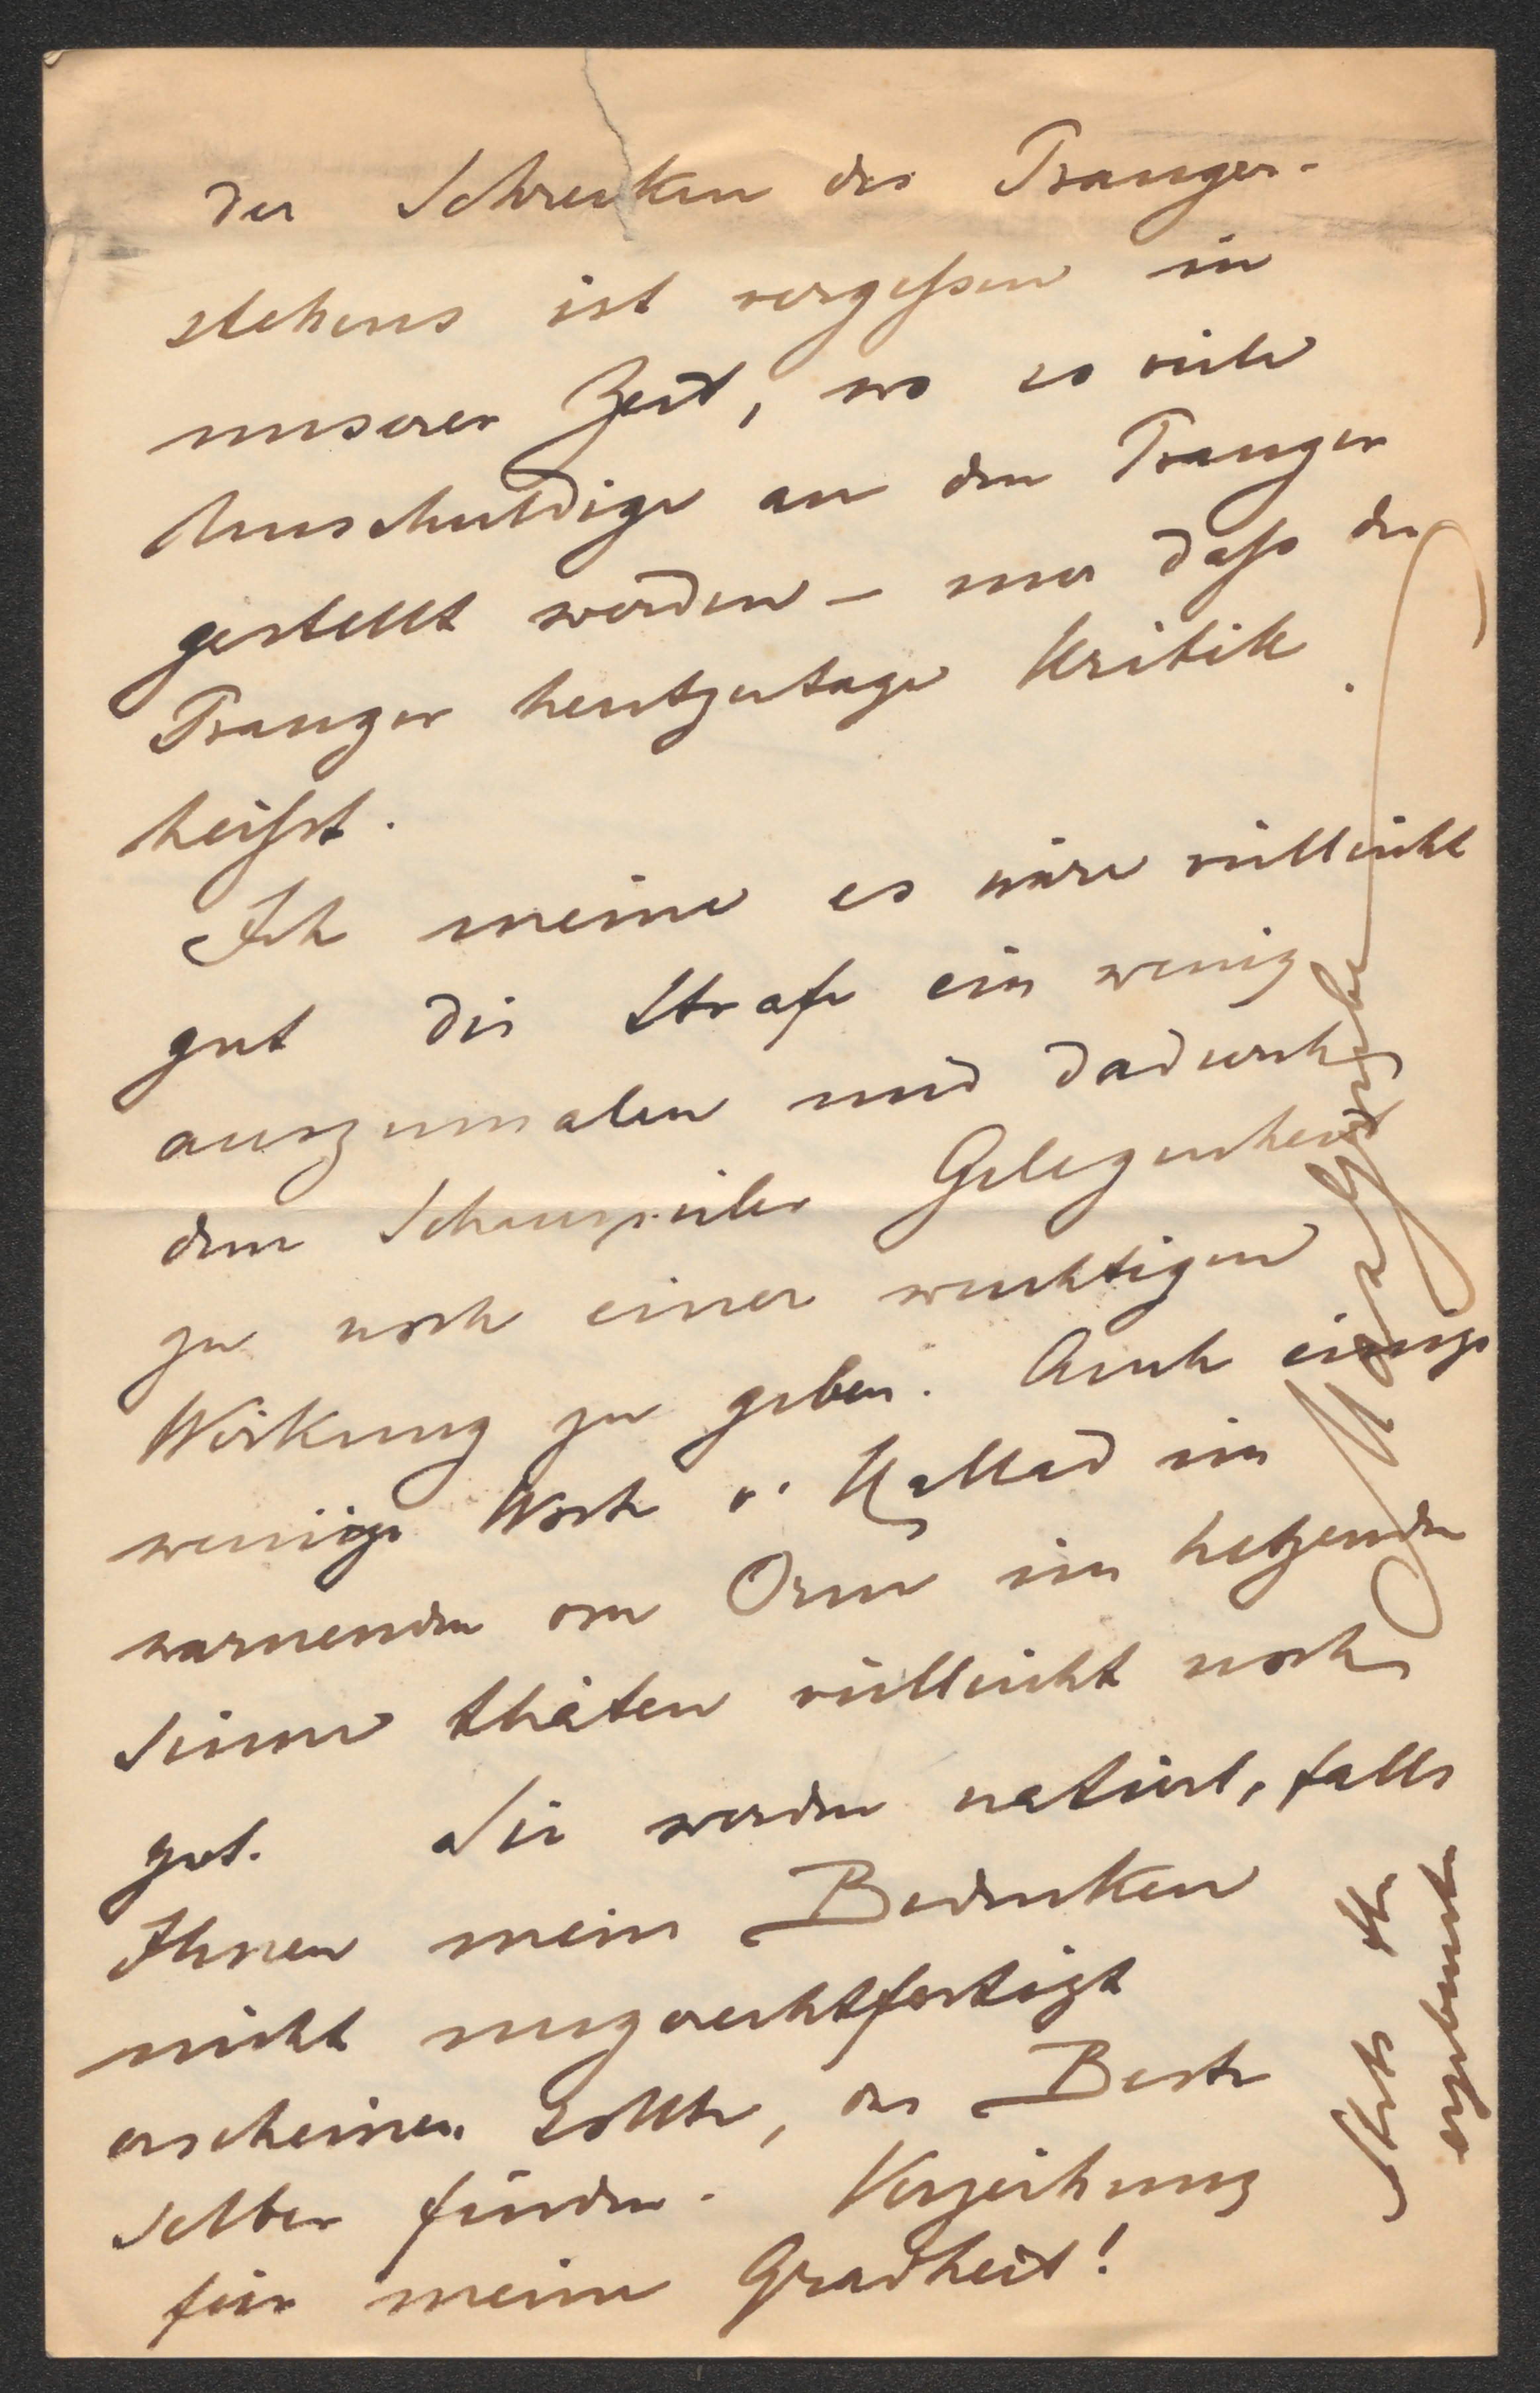 Der Schrecken des Pranger-
stehens ist vergeßen in
unserer Zeit, wo so viele
Unschuldige an den Pranger
gestellt werden – nur daß der
Pranger heutzutage Kritik
heißt.
Ich meine es wäre vielleicht
gut die Strafe ein wenig
auszumalen und dadurch
dem Schauspieler Gelegenheit
zu noch einer wuchtigen
Wirkung zu geben. Auch einige
wenige Worte v. Hallad im
warnenden von Orm im hetzenden
Sinne thäten vielleicht noch
gut. Sie werden natürl, falls
Ihnen mein Bedenken
nicht ungerechtfertigt
erscheinen sollte, das Beste
selber finden. Verzeihung
für meine Gradheit!
Stets Ihr
ergebenster
Max